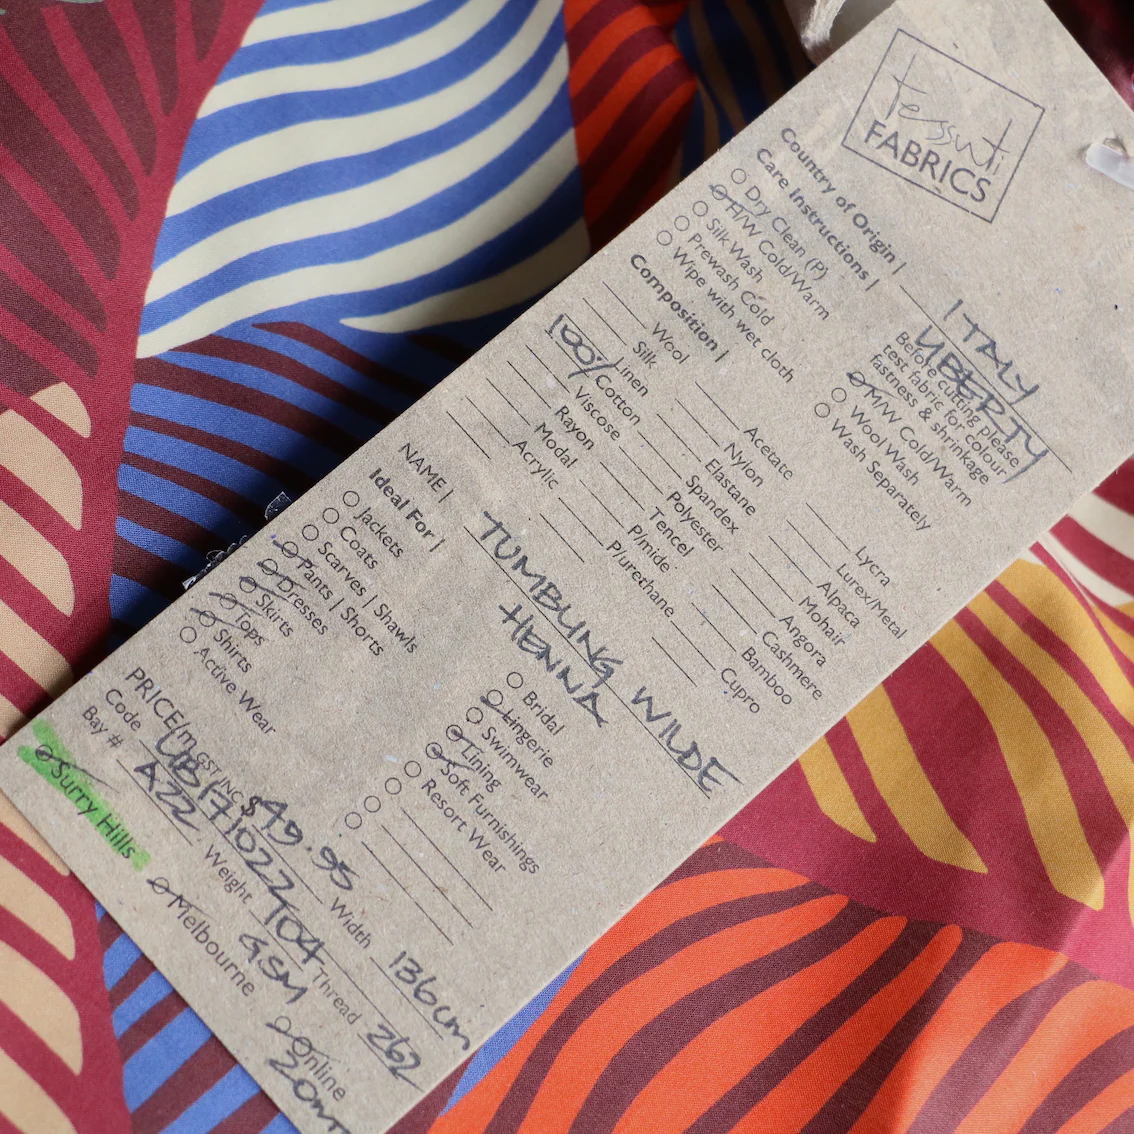 Tessuti
FABRICS
Country of Origin | ITALY
LIBERTY
Care Instructions |
Before cutting please
test fabric for colour
fastness & shrinkage
Dry Clean (P)
H/W Cold/Warm
Silk Wash
Prewash Cold
Wipe with wet cloth
M/W Cold/Warm
Wool Wash
Wash Separately
Composition |
Wool
Silk
Linen
100% Cotton
Viscose
Rayon
Modal
Acrylic
Acetate
Nylon
Elastane
Spandex
Polyester
Tencel
P/mide
P/urethane
Lycra
Lurex/Metal
Alpaca
Mohair
Angora
Cashmere
Bamboo
Cupro
NAME | TUMBLING WILDE
HENNA
Ideal For |
Jackets
Coats
Scarves | Shawls
Pants | Shorts
Dresses
Skirts
Tops
Shirts
Active Wear
Bridal
Lingerie
Swimwear
Lining
Soft Furnishings
Resort Wear
PRICE/m GST INC $49.95 Width 136cm
Code
Weight 104 GSM Thread 262
Bay # A22
Surry Hills
Melbourne
Online
20m